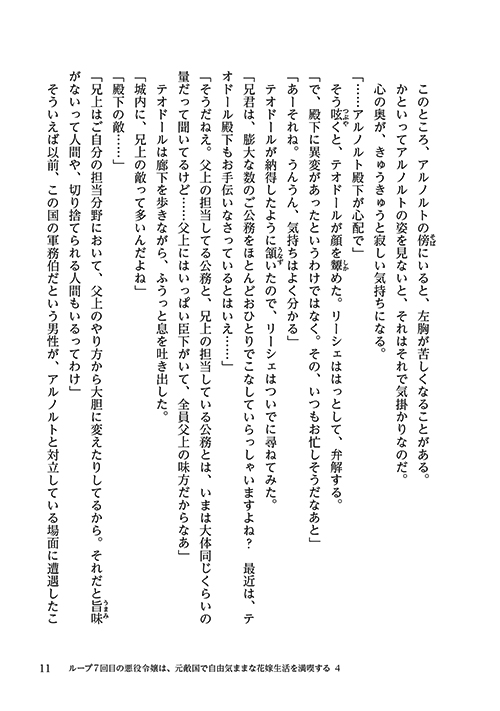 このところ、アルノルトの傍にいると、左胸が苦しくなることがある。
かといってアルノルトの姿を見ないと、それはそれで気掛かりなのだ。
心の奥が、きゅうきゅうと寂しい気持ちになる。
「……アルノルト殿下が心配で」
そう呟くと、テオドールが顔を顰めた。リーシェははっとして、弁解する。
「で、殿下に異変があったというわけではなく。その、いつもお忙しそうだなあと」
「あーそれね。うんうん、気持ちはよく分かる」
テオドールが納得したように頷いたので、リーシェはついでに尋ねてみた。
「兄君は、膨大な数のご公務をほとんどおひとりでこなしていらっしゃいますよね？　最近は、テ
オドール殿下もお手伝いなさっているとはいえ……」
「そうだねえ。父上の担当してる公務と、兄上の担当している公務とは、いまは大体同じくらいの
量だって聞いてるけど……父上にはいっぱい臣下がいて、全員父上の味方だからなあ」
テオドールは廊下を歩きながら、ふうっと息を吐き出した。
「城内に、兄上の敵って多いんだよね」
「殿下の敵……」
「兄上はご自分の担当分野において、父上のやり方から大胆に変えたりしてるから。それだと旨味
がないって人間や、切り捨てられる人間もいるってわけ」
そういえば以前、この国の軍務伯だという男性が、アルノルトと対立している場面に遭遇したこ
11　ループ7回目の悪役令嬢は、元敵国で自由気ままな花嫁生活を満喫する 4